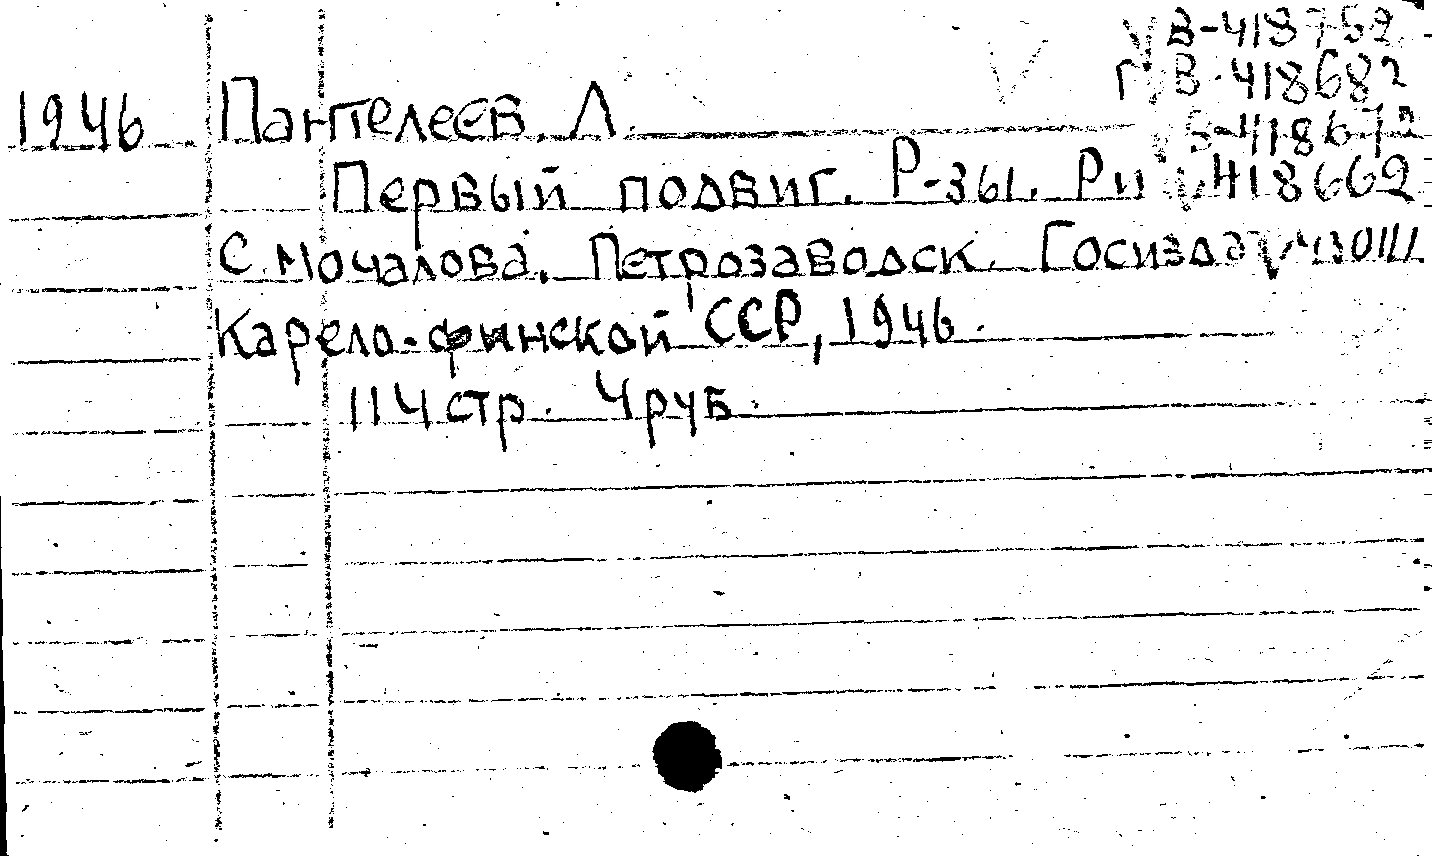 В-418752
Г В-418682
1946 Пантелеев. Л.
418662
Первый подвиг. Р-зы. Ри
С. Мочалова. Петрозаводск. Госизда
Карело-финской ССР, 1946.
114 стр. 4 руб.